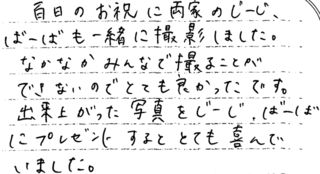 百日のお祝に両家のじーじ、
ばーばも一緒に撮影しました。
なかなかみんなで撮ることが
できないのでとても良かったです。
出来上がった写真をじーじ、ばーば
にプレゼントするととても喜んで
いました。